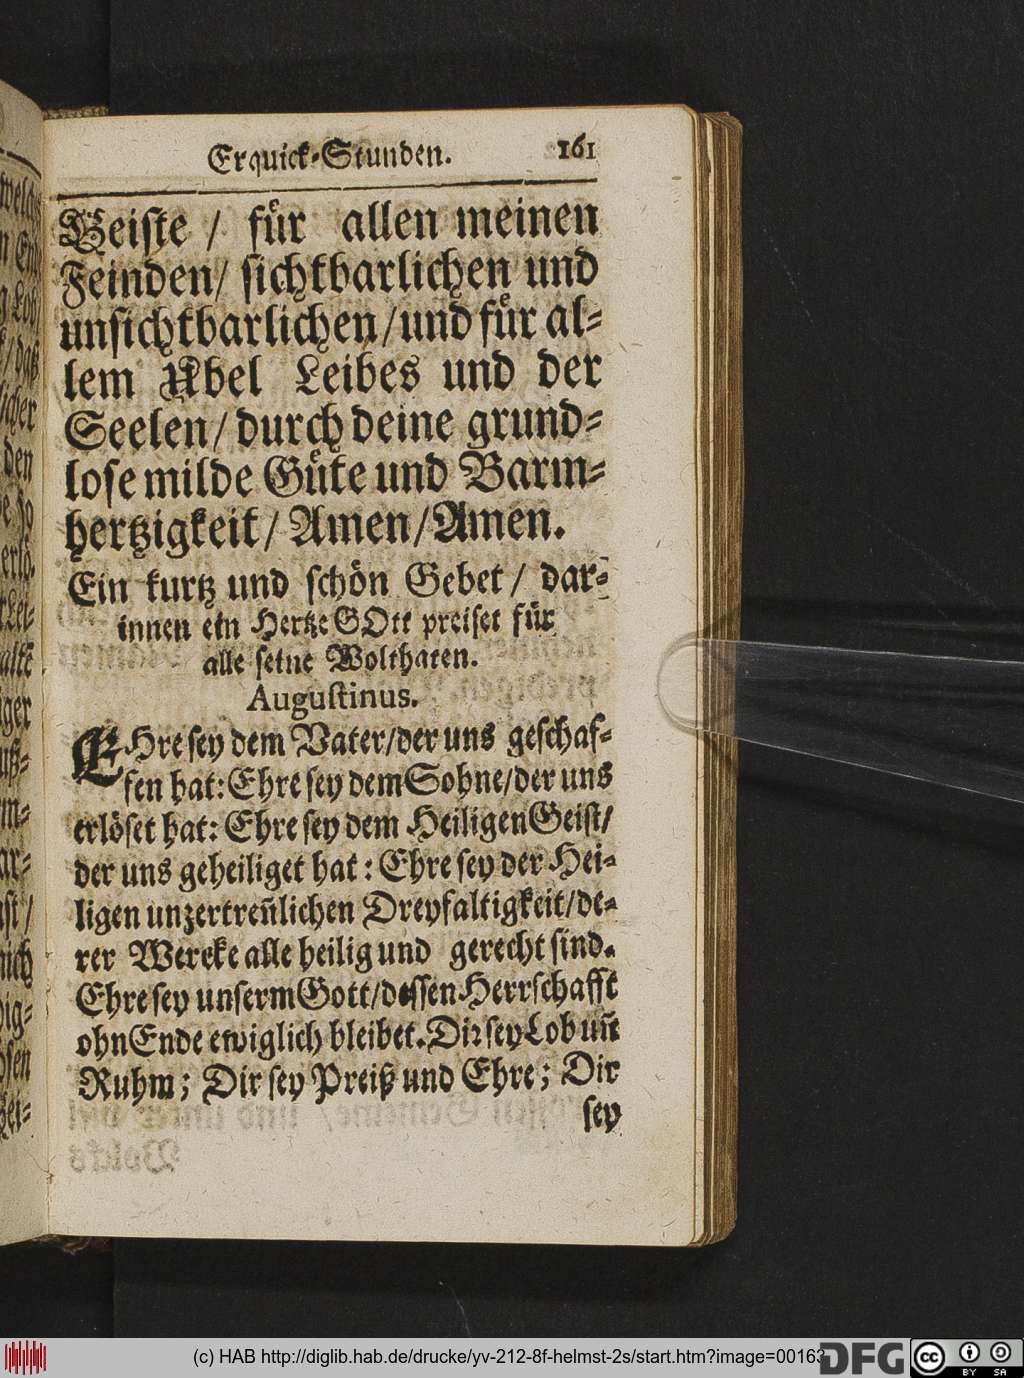 Erquick-Stunden. 161
Geiste / fůr allen meinen
Feinden / sichtbarlichen und
unsichtbarlichen / und fůr al-
lem Ubel Leibes und der
Seelen / durch deine grund-
lose milde Gůte und Barm-
hertzigkeit / Amen / Amen.
Ein kurtz und schön Gebet / dar-
innen ein Hertze GOtt preiset fůr
alle seine Wolthaten.
Augustinus.
EHre sey dem Vater / der uns geschaf-
fen hat: Ehre sey dem Sohne / der uns
erlöset hat: Ehre sey dem Heiligen Geist /
der uns geheiliget hat: Ehre sey der Hei-
ligen unzertreñlichen Dreyfaltigkeit / de-
rer Wercke alle heilig und gerecht sind.
Ehre sey unserm Gott / dessen Herrschafft
ohn Ende ewiglich bleibet. Dir sey Lob uñ
Ruhm; Dir sey Preiß und Ehre; Dir
sey
(c) HAB http://diglib.hab.de/drucke/yv-212-8f-helmst-2s/start.htm?image=00163
DFG
cc BY SA